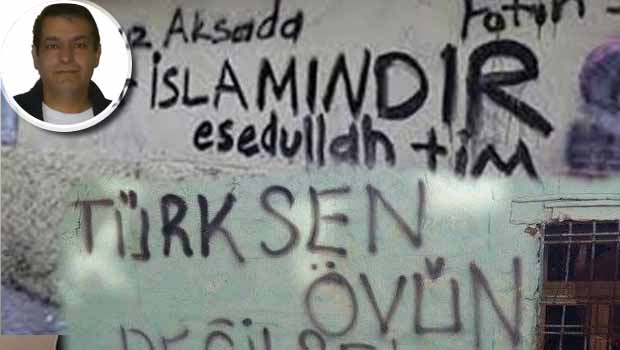 Aksada
İSLAMINDIR
esedullah tim
TÜRKSEN
ÖVÜN
DEĞİLSEN